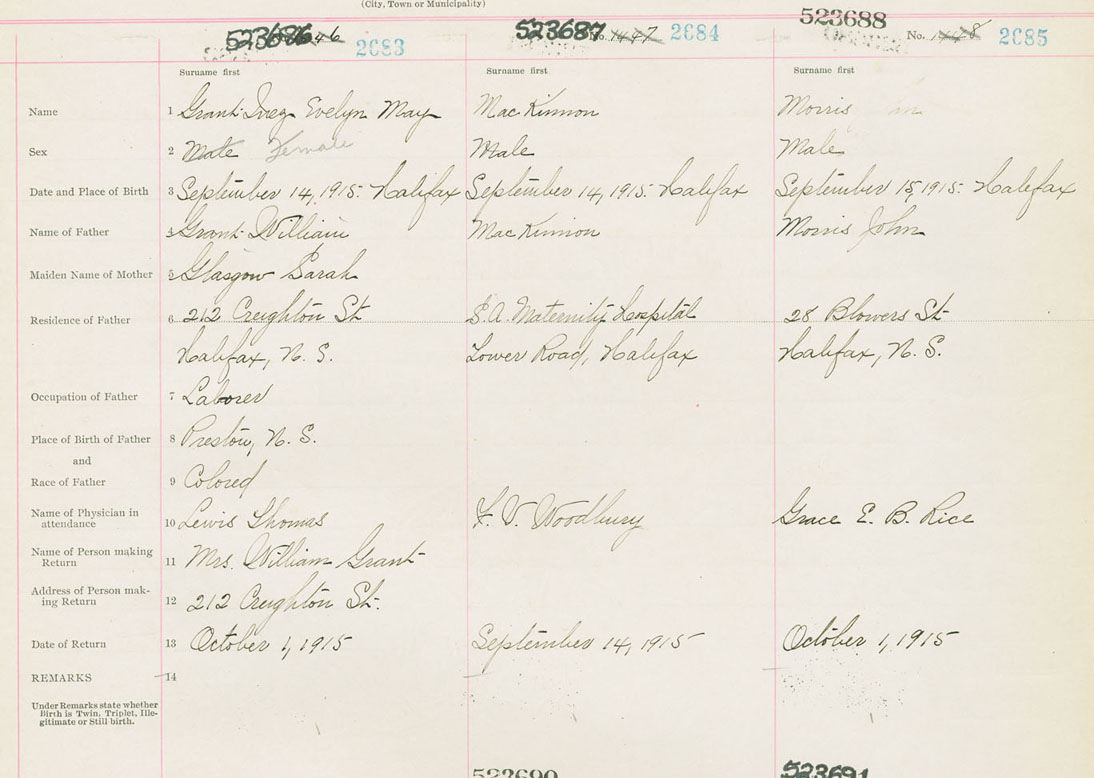 (City, Town or Municipality)
523686 2683 523687 No. 1447 2684 523688 No. 1448 2685
Surname first Surname first Surname first
Name 1 Grant Inez Evelyn May MacKinnon Morris
Sex 2 Male Female Male Male
Date and Place of Birth 3 September 14, 1915. Halifax September 14, 1915. Halifax September 15, 1915. Halifax
Name of Father 4 Grant William MacKinnon Morris John
Maiden Name of Mother 5 Glasgow Sarah
Residence of Father 6 212 Creighton St. S.A. Maternity Hospital 28 Blowers St.
Halifax, N. S. Lower Road, Halifax Halifax, N. S.
Occupation of Father 7 Laborer
Place of Birth of Father 8 Preston, N. S.
and
Race of Father 9 Colored
Name of Physician in
attendance 10 Lewis Thomas F. V. Woodbury Grace E. B. Rice
Name of Person making
Return 11 Mrs. William Grant
Address of Person mak-
ing Return 12 212 Creighton St.
Date of Return 13 October 1, 1915 September 14, 1915 October 1, 1915
REMARKS 14
Under Remarks state whether
Birth is Twin, Triplet, Ille-
gitimate or Still birth.
523690 523691